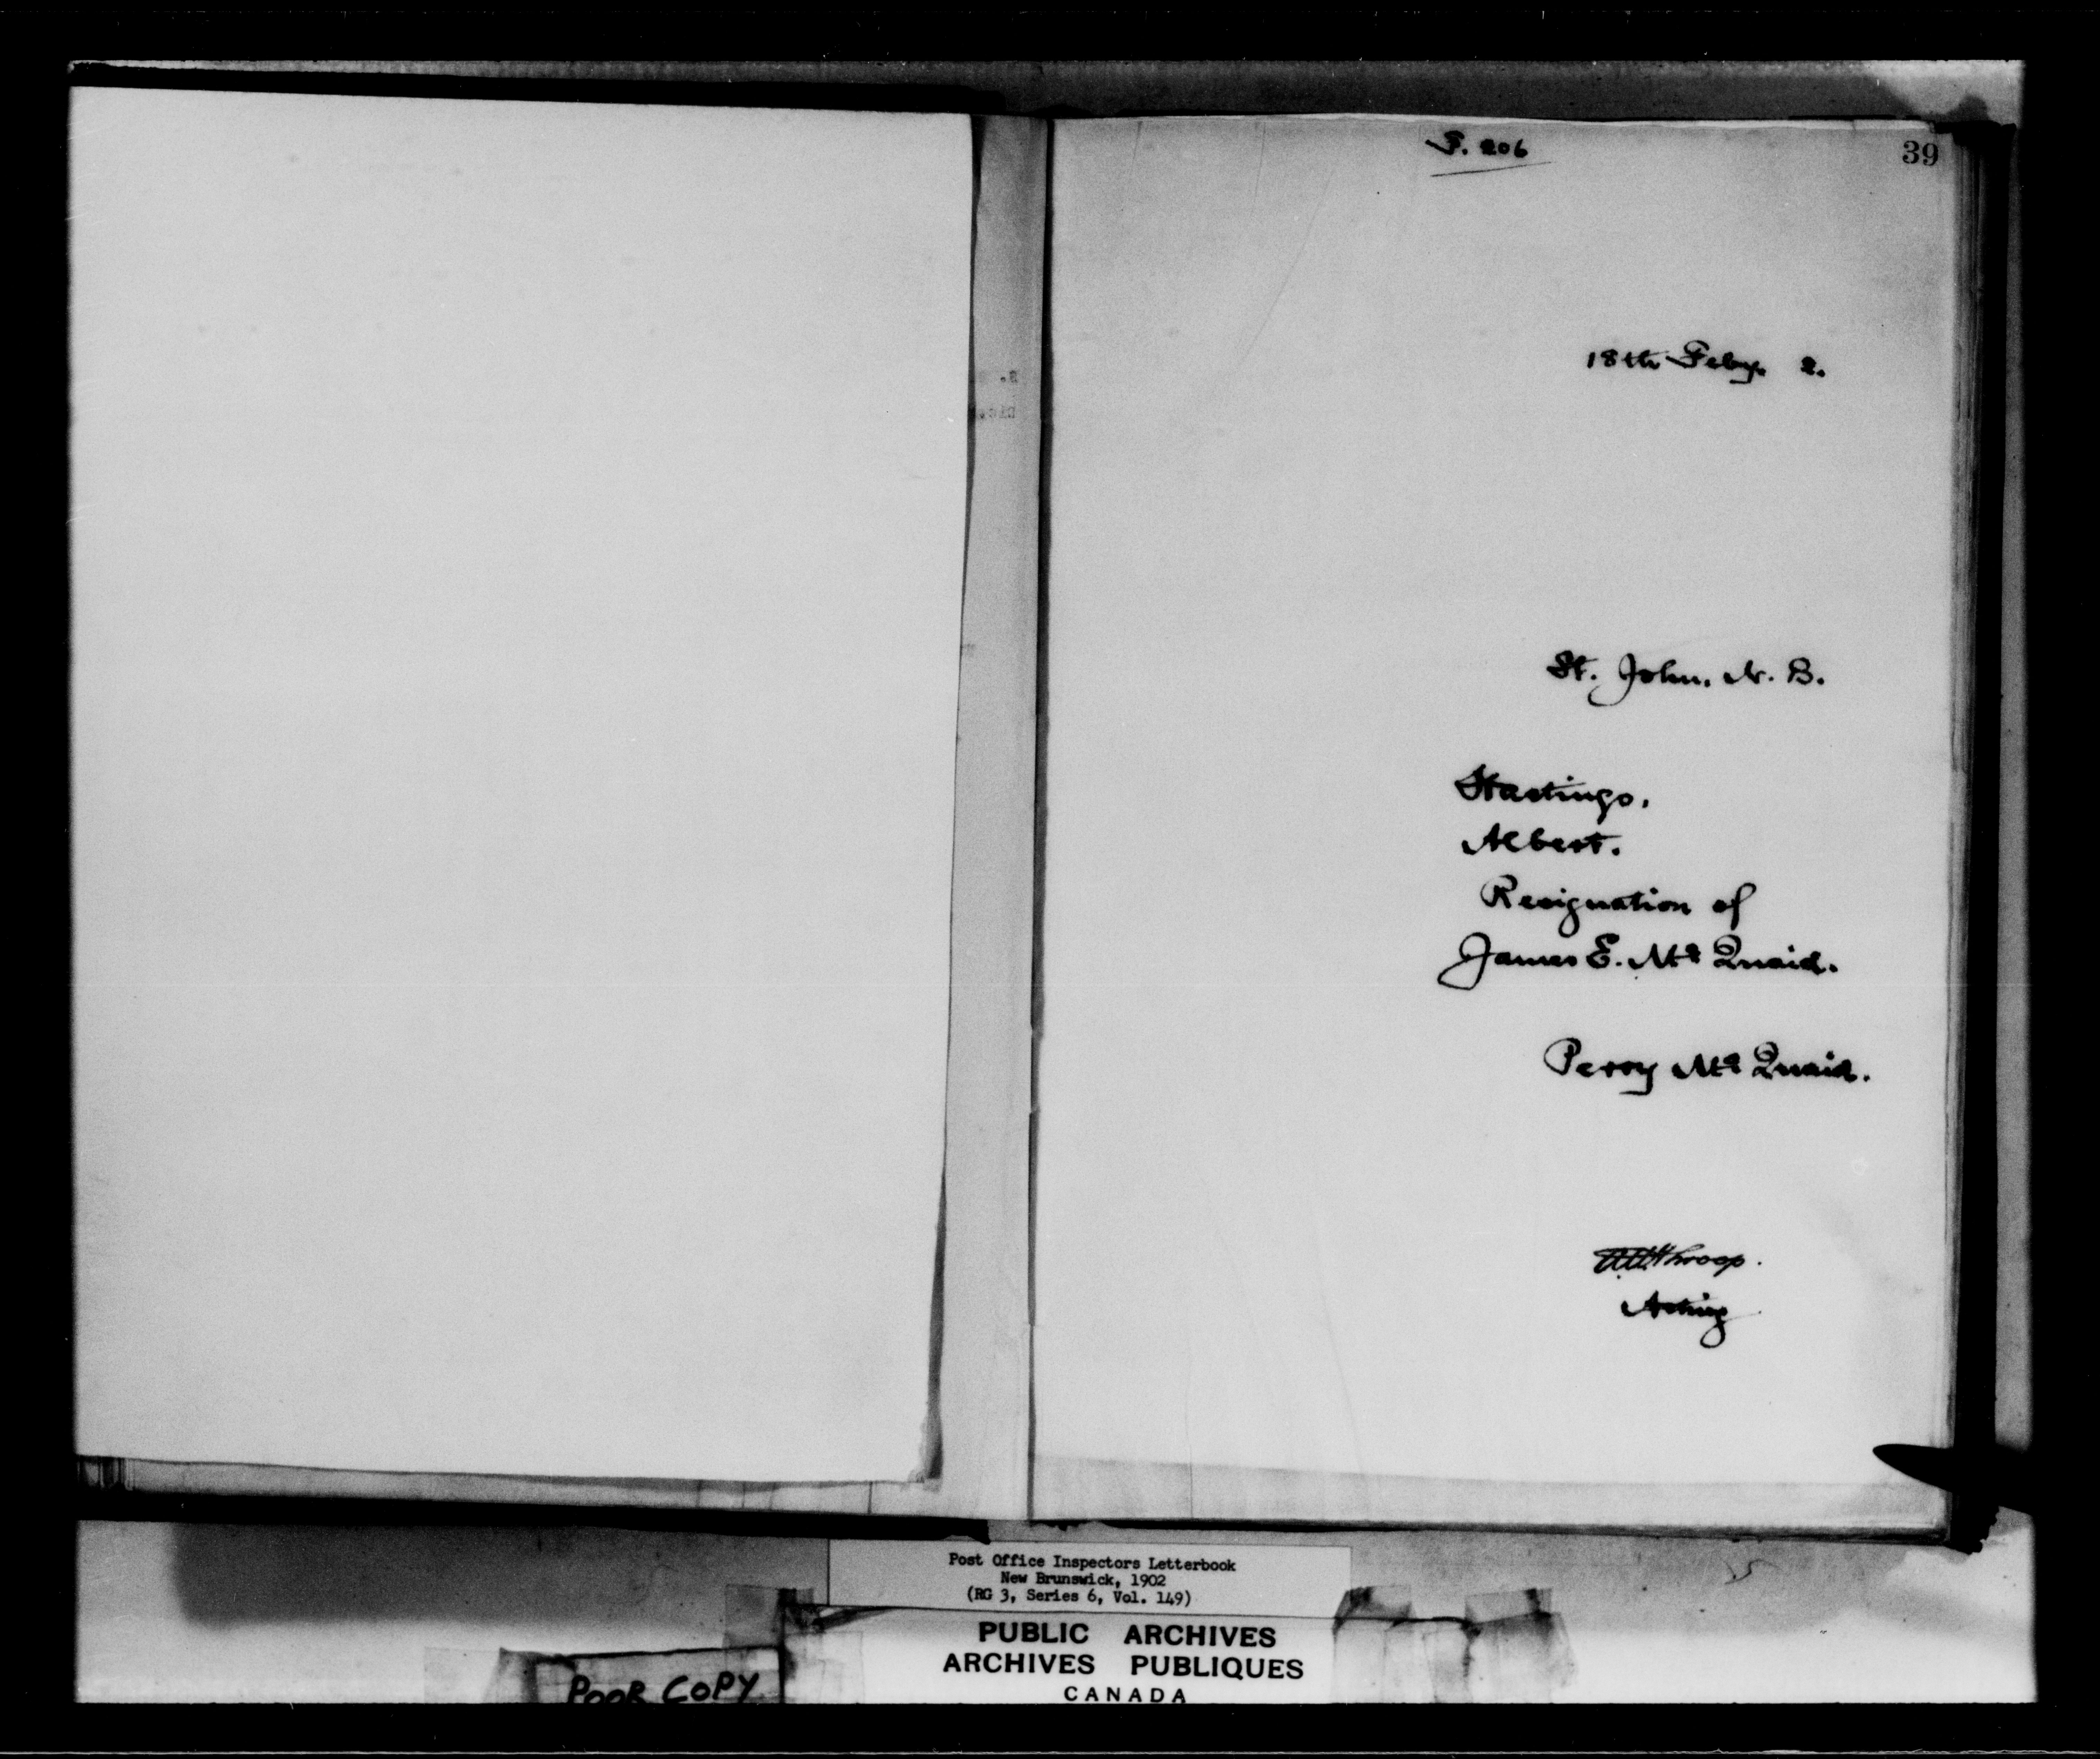 F. 206
39
18th Feby. 2.
St. John, N. B.
Hastings,
Albert.
Resignation of
James E. McQuaid.
Percy McQuaid.
Throop.
Acting
Post Office Inspectors Letterbook
New Brunswick, 1902
(RG 3, Series 6, Vol. 149)
PUBLIC ARCHIVES
ARCHIVES PUBLIQUES
CANADA
POOR COPY